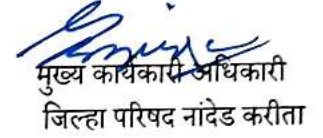 मुख्य कार्यकारी अधिकारी
जिल्हा परिषद नांदेड करीता